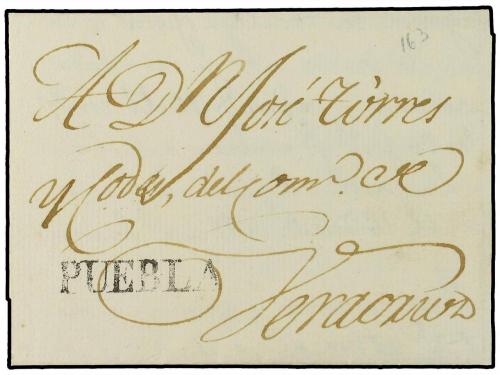 163
A Dn José Tôrres
y Codes, del Comro. de
PUEBLA
Veracruz